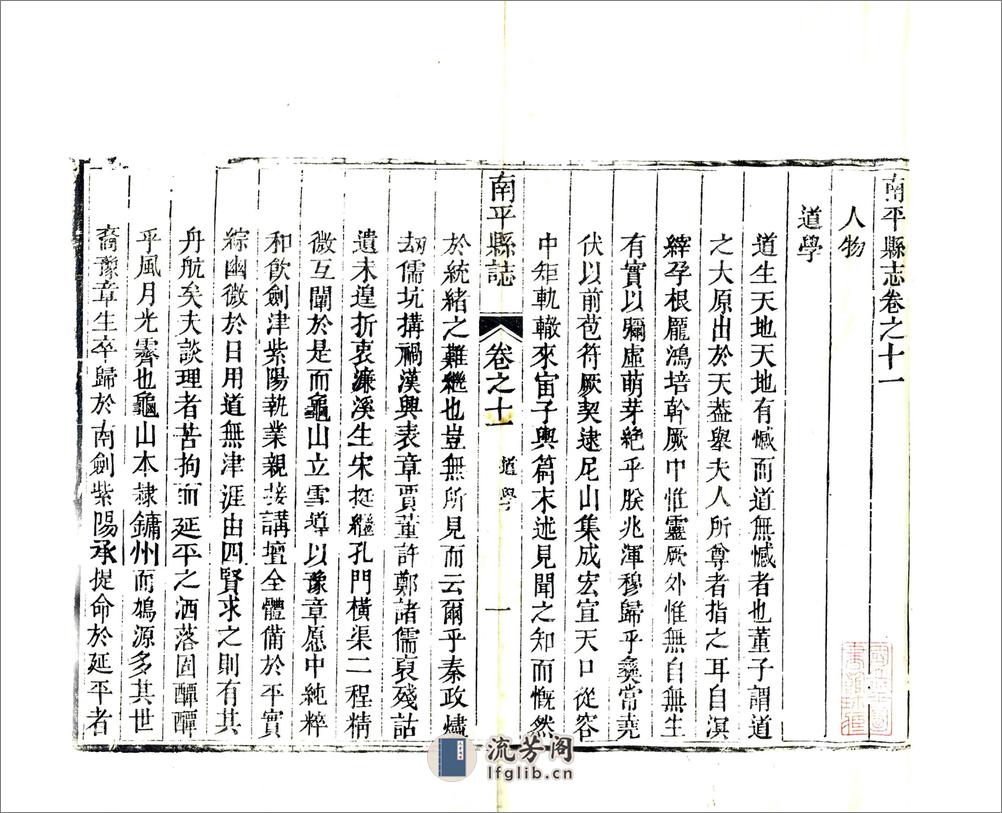 南平縣志卷之十一
人物
道學
道生天地天地有憾而道無憾者也董子謂道
之大原出於天葢舉夫人所尊者指之耳自溟
縡孕根厖鴻培幹厥中惟靈厥外惟無自無生
有實以彌虛萌芽絶乎朕兆渾穆歸乎彝常堯
伏以前苞符厥契逮尼山集成宏宣天口從容
中矩軌轍來宙子輿篇末述見聞之知而慨然
南平縣誌 卷之十一 道學 一
於統緒之難繼也豈無所見而云爾乎秦政燼
刼儒坑搆禍漢興表章賈董許鄭諸儒裒殘詁
遺未遑折衷濂溪生宋挺繼孔門橫渠二程精
微互闡於是而龜山立雪導以豫章愿中純粹
和飲劍津紫陽執業親接講壇全體備於平實
綜幽微於日用道無津涯由四賢求之則有其
舟航矣夫談理者苦拘而延平之洒落囡醰醰
乎風月光霽也龜山本隷鏞州而鳩源多其世
裔豫章生卒歸於南劍紫陽承提命於延平者
流芳阁
lfglib.cn